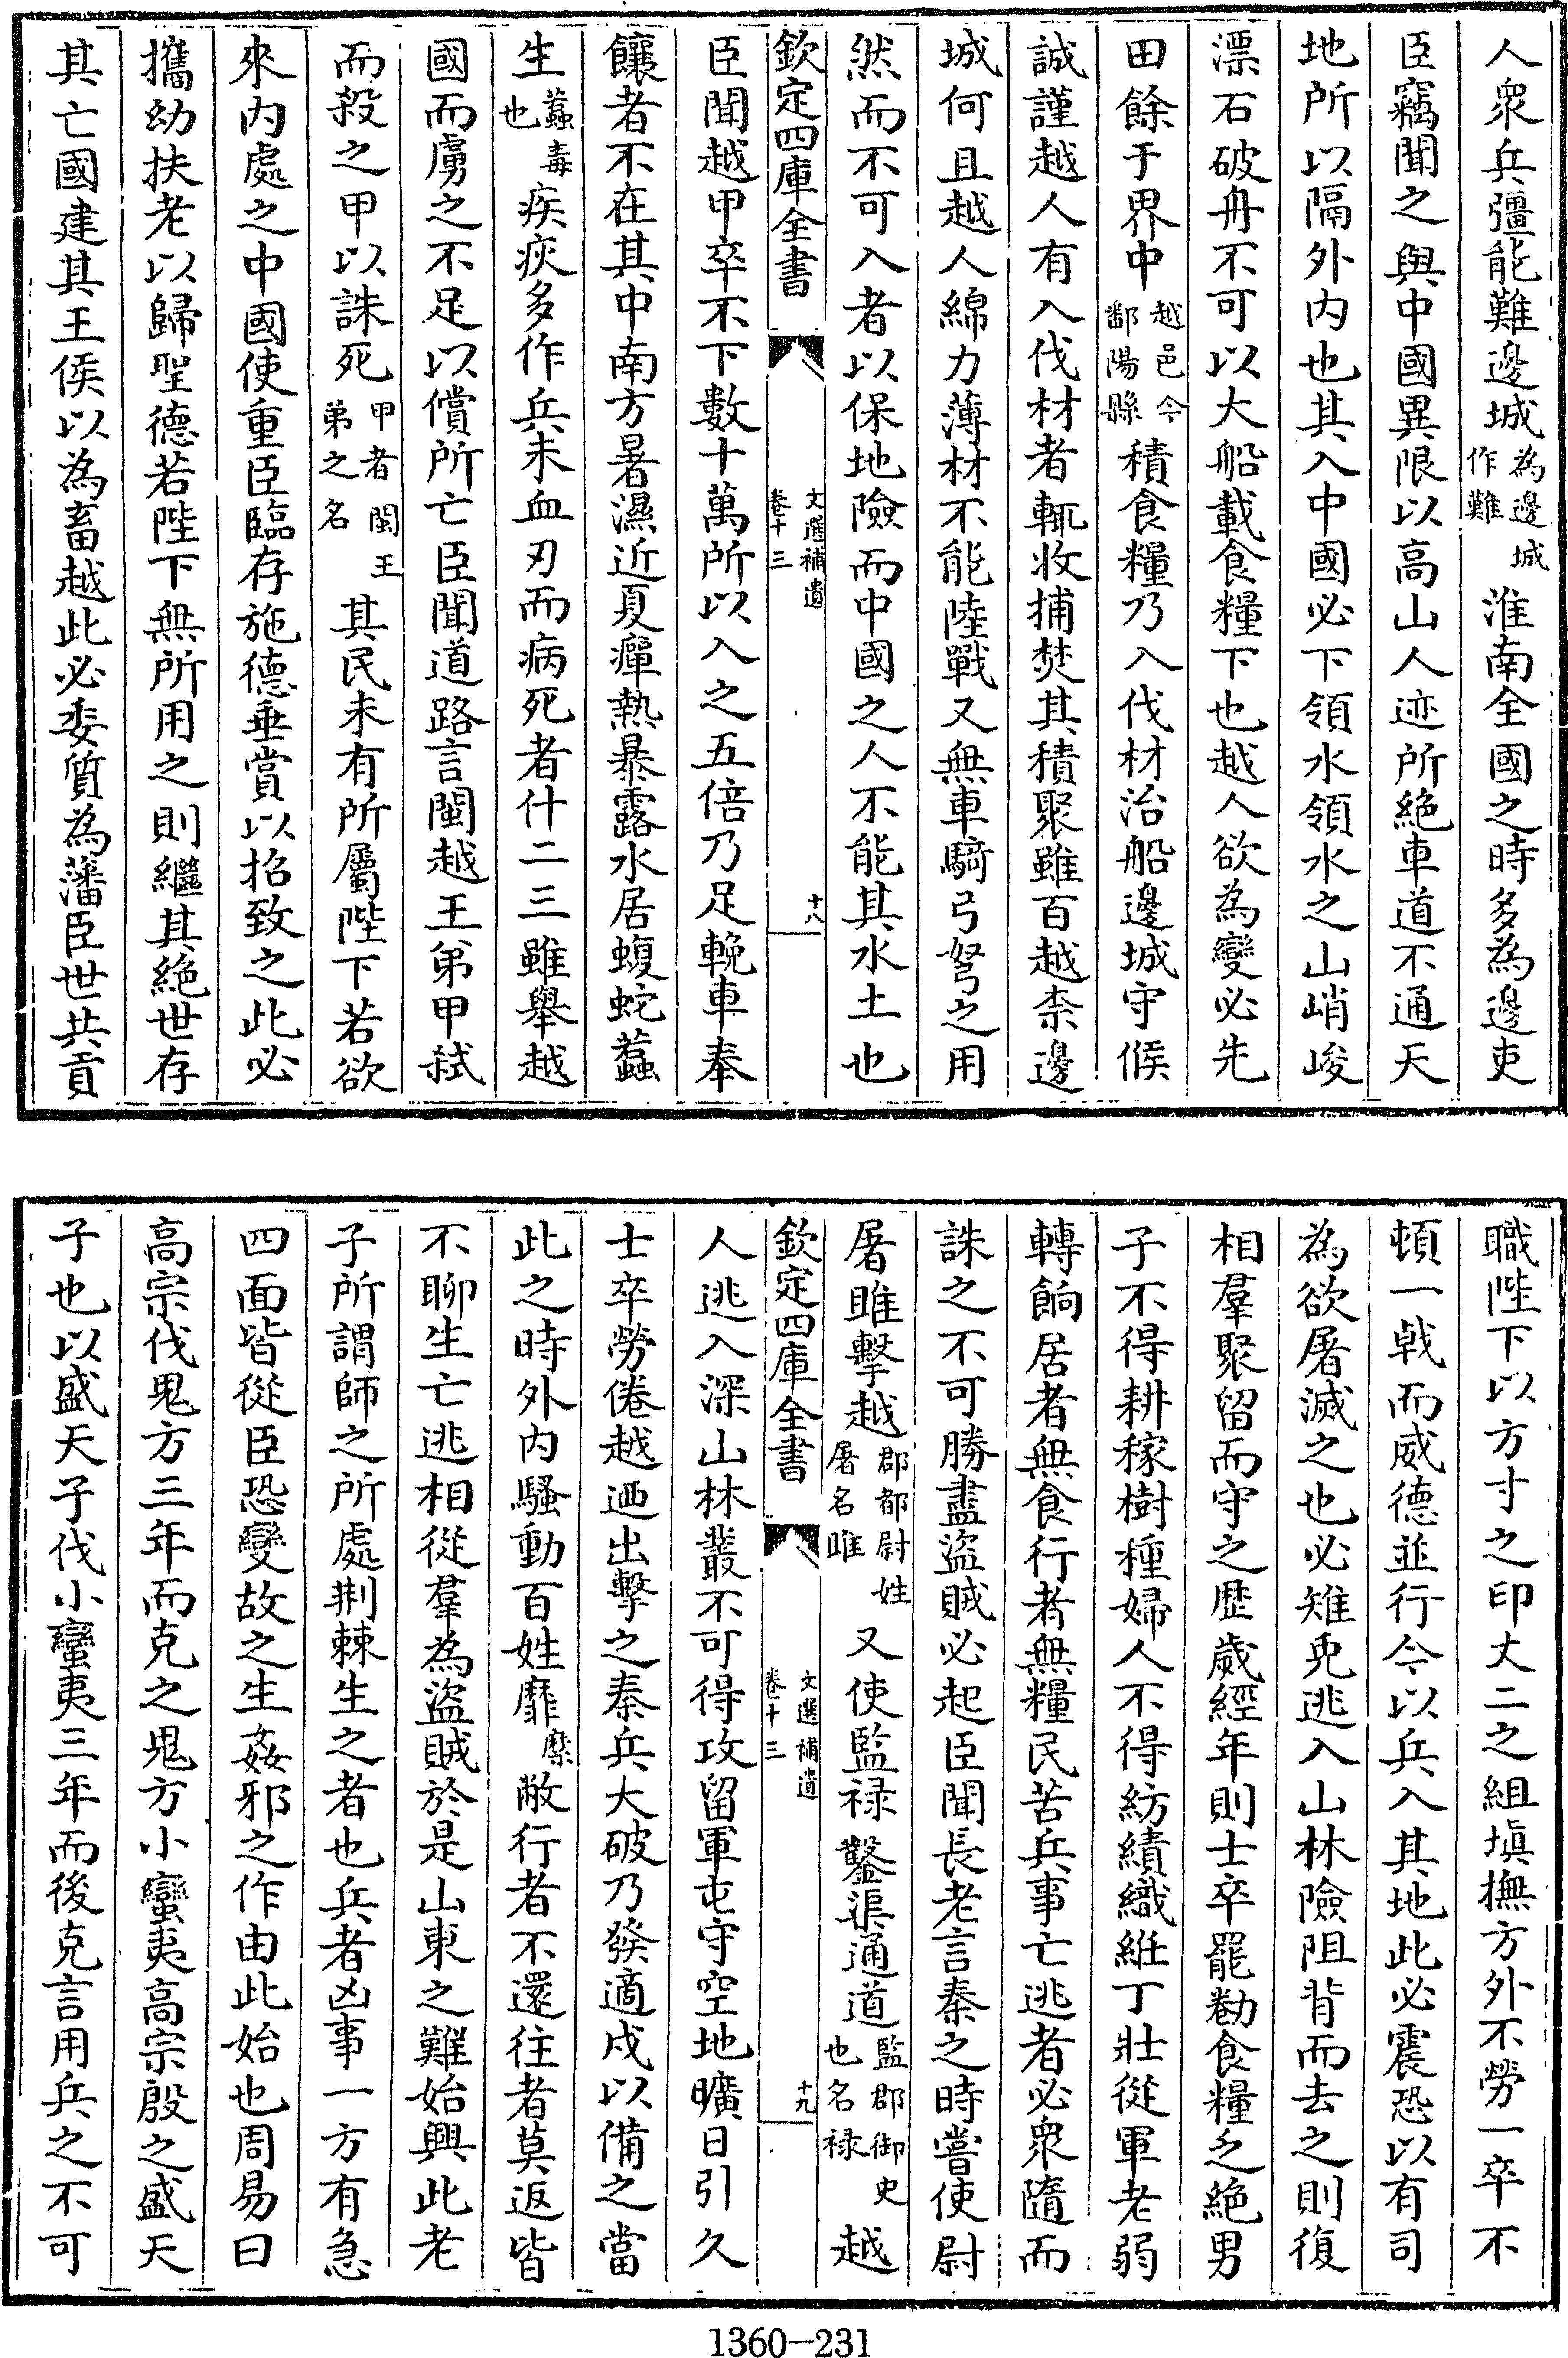 人衆兵彊能難邊城為邊城作難淮南全國之時多為邊吏
臣竊聞之與中國異限以高山人迹所絶車道不通天
地所以隔外内也其入中國必下領水領水之山峭峻
漂石破舟不可以大船載食糧下也越人欲為變必先
田餘于界中越邑今鄱陽縣積食糧乃入伐材治船邊城守候
誠謹越人有入伐材者輒收捕焚其積聚雖百越柰邊
城何且越人綿力薄材不能陸戰又無車騎弓弩之用
然而不可入者以保地險而中國之人不能其水土也
欽定四庫全書 文選補遺卷十三 十八
臣聞越甲卒不下數十萬所以入之五倍乃足輓車奉
饟者不在其中南方暑濕近夏癉熱暴露水居蝮蛇蠚
生蠚毒也疾疢多作兵未血刃而病死者什二三雖舉越
國而虜之不足以償所亡臣聞道路言閩越王弟甲弑
而殺之甲以誅死甲者閩王弟之名其民未有所屬陛下若欲
來内處之中國使重臣臨存施德垂賞以招致之此必
攜幼扶老以歸聖德若陛下無所用之則繼其絶世存
其亡國建其王侯以為畜越此必委質為藩臣世共貢
職陛下以方寸之印丈二之組塡撫方外不勞一卒不
頓一戟而威德並行今以兵入其地此必震恐以有司
為欲屠滅之也必雉兎逃入山林險阻背而去之則復
相羣聚留而守之歷歲經年則士卒罷勌食糧乏絶男
子不得耕稼樹種婦人不得紡績織絍丁壯從軍老弱
轉餉居者無食行者無糧民苦兵事亡逃者必衆隨而
誅之不可勝盡盜賊必起臣聞長老言秦之時嘗使尉
屠雎擊越郡都尉姓屠名雎又使監禄鑿渠通道監郡御史也名禄越
欽定四庫全書 文選補遺卷十三 十九
人逃入深山林叢不可得攻留軍屯守空地曠日引久
士卒勞倦越迺出擊之秦兵大破乃發適戍以備之當
此之時外内騷動百姓靡糜敝行者不還往者莫返皆
不聊生亡逃相從羣為盜賊於是山東之難始興此老
子所謂師之所處荆棘生之者也兵者凶事一方有急
四面皆從臣恐變故之生姦邪之作由此始也周易曰
高宗伐鬼方三年而克之鬼方小蠻夷高宗殷之盛天
子也以盛天子伐小蠻夷三年而後克言用兵之不可
1360-231